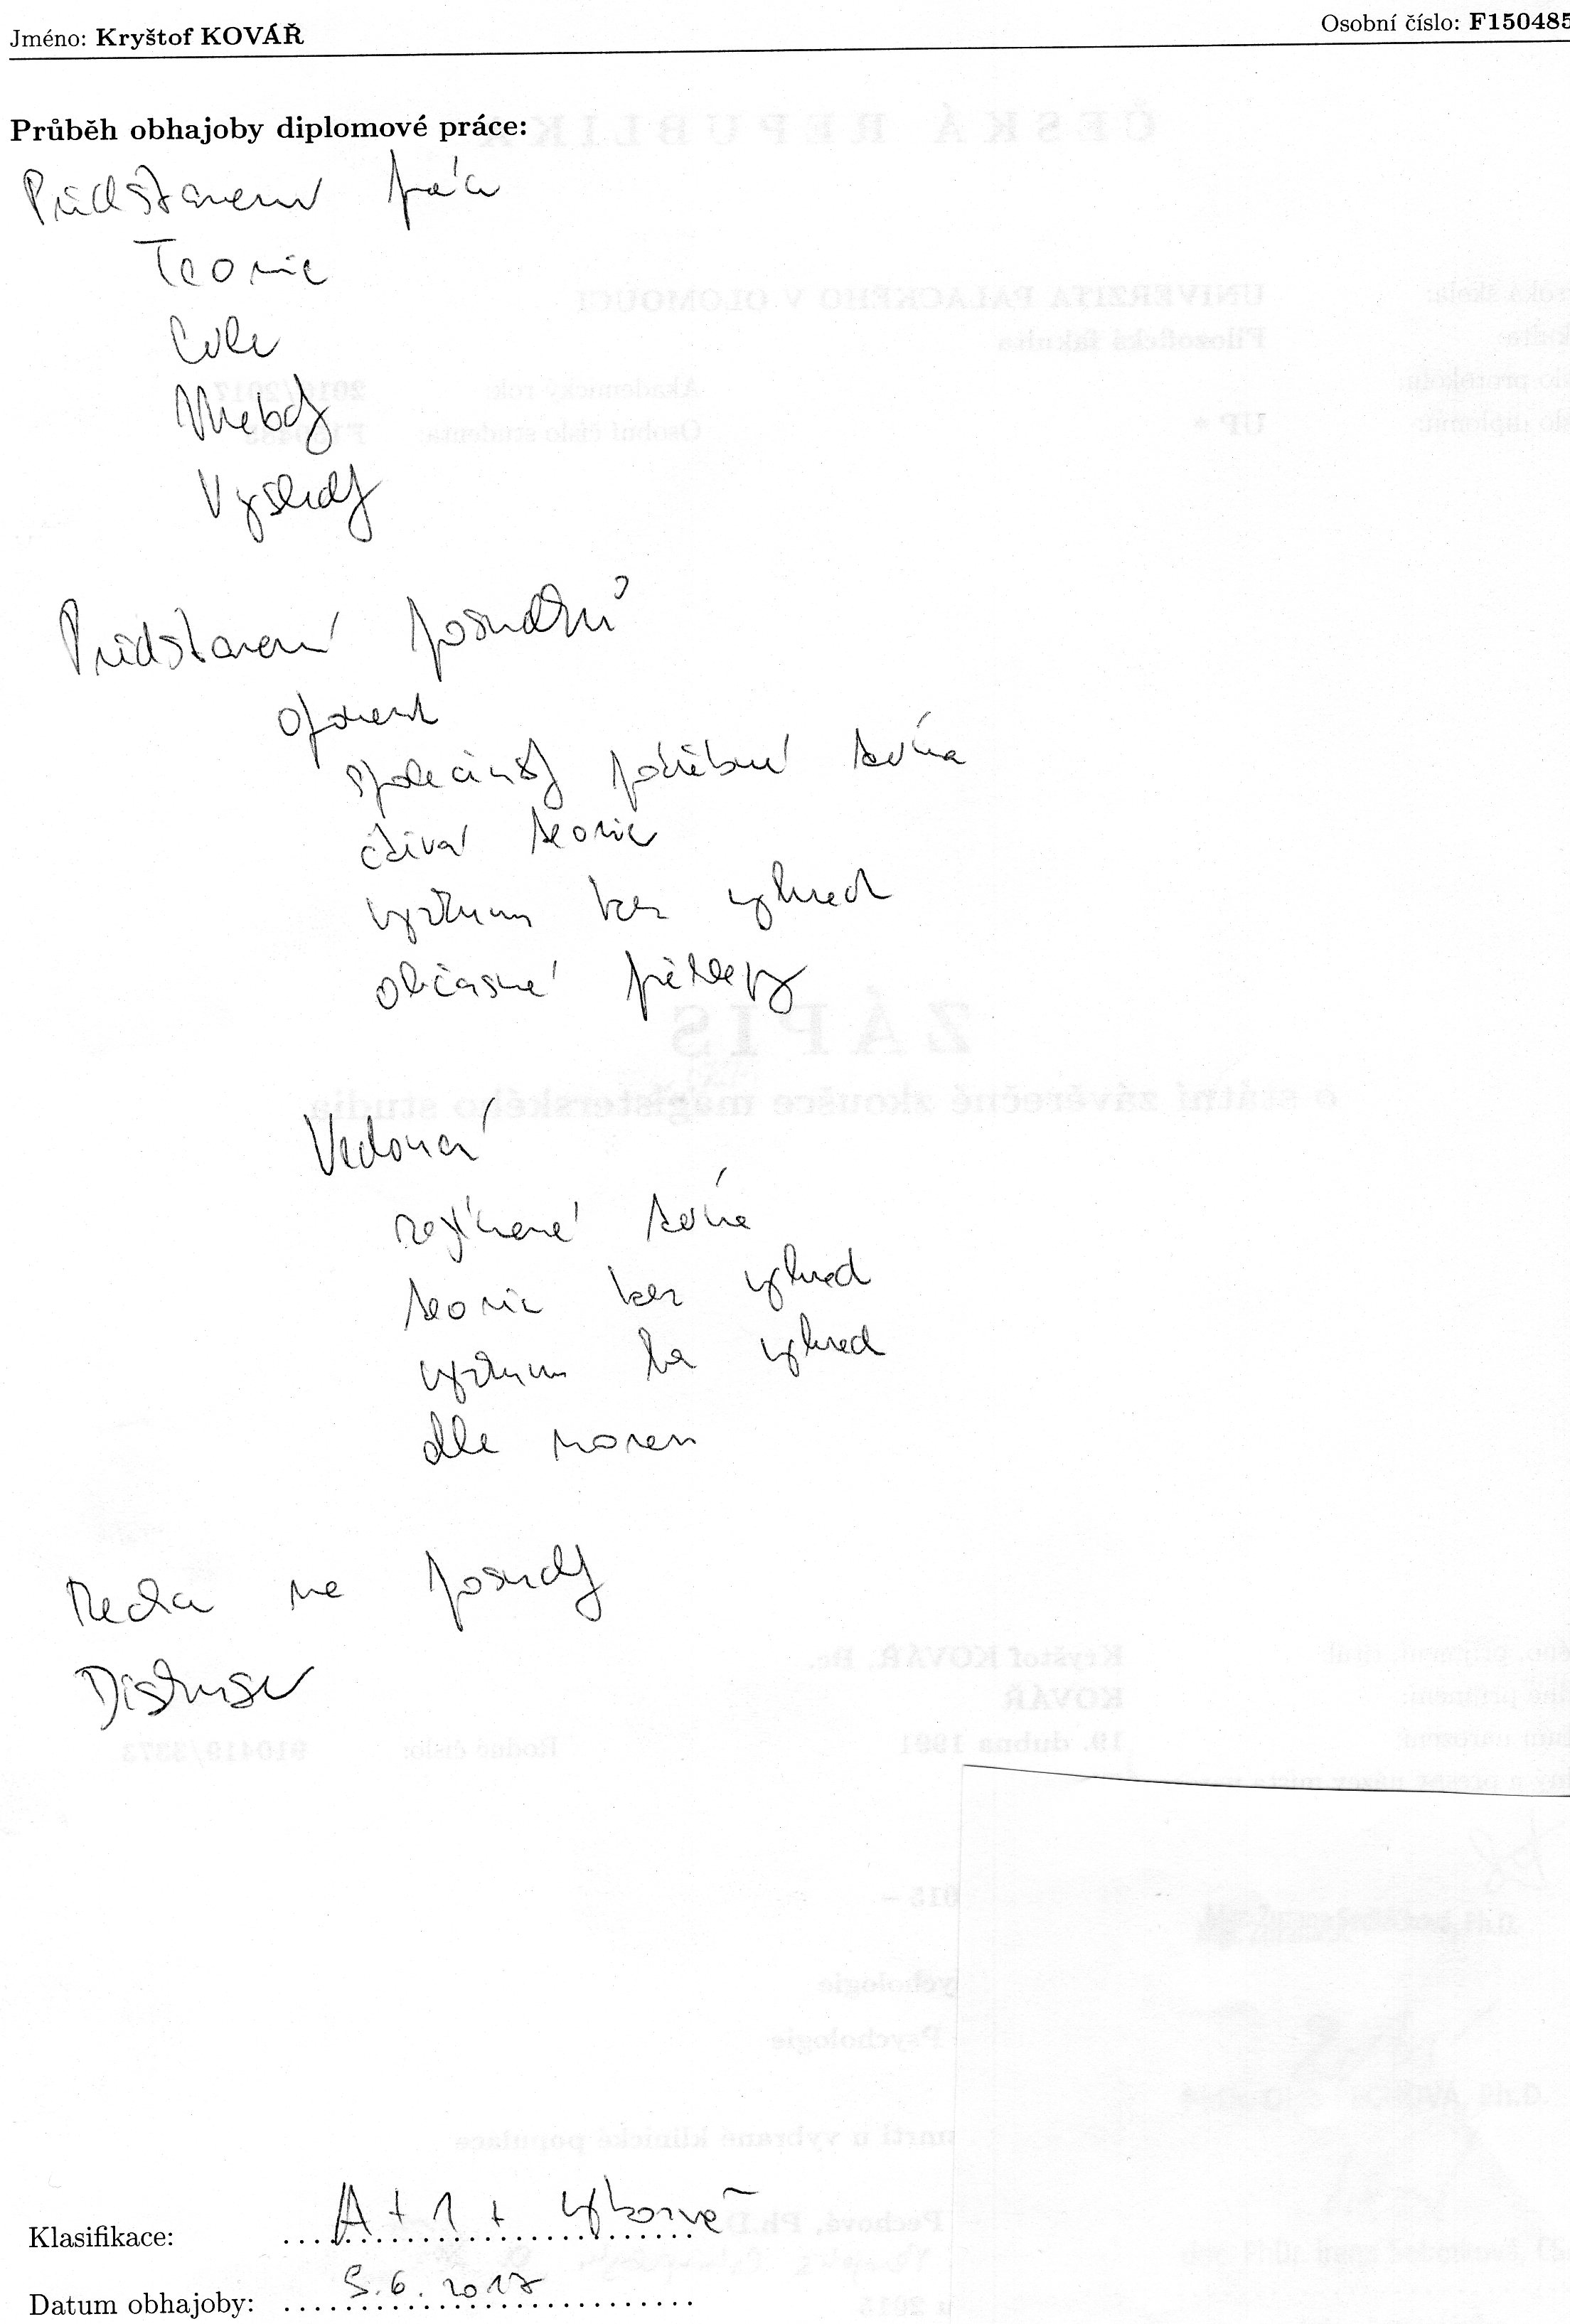 Jméno: Kryštof KOVÁŘ Osobní číslo: F150485
Průběh obhajoby diplomové práce:
Představení práce
Teorie
Cíle
Metody
Výsledky
Představení posudků
oponent
společensky potřebné téma
čtivá teorie
výzkum bez výhrad
občasné překlepy
Vedoucí
zajímavé téma
teorie bez výhrad
výzkum bez výhrad
dle norem
Reakce na posudky
Diskuse
Klasifikace: A + 1 + výborně
Datum obhajoby: 5.6.2017